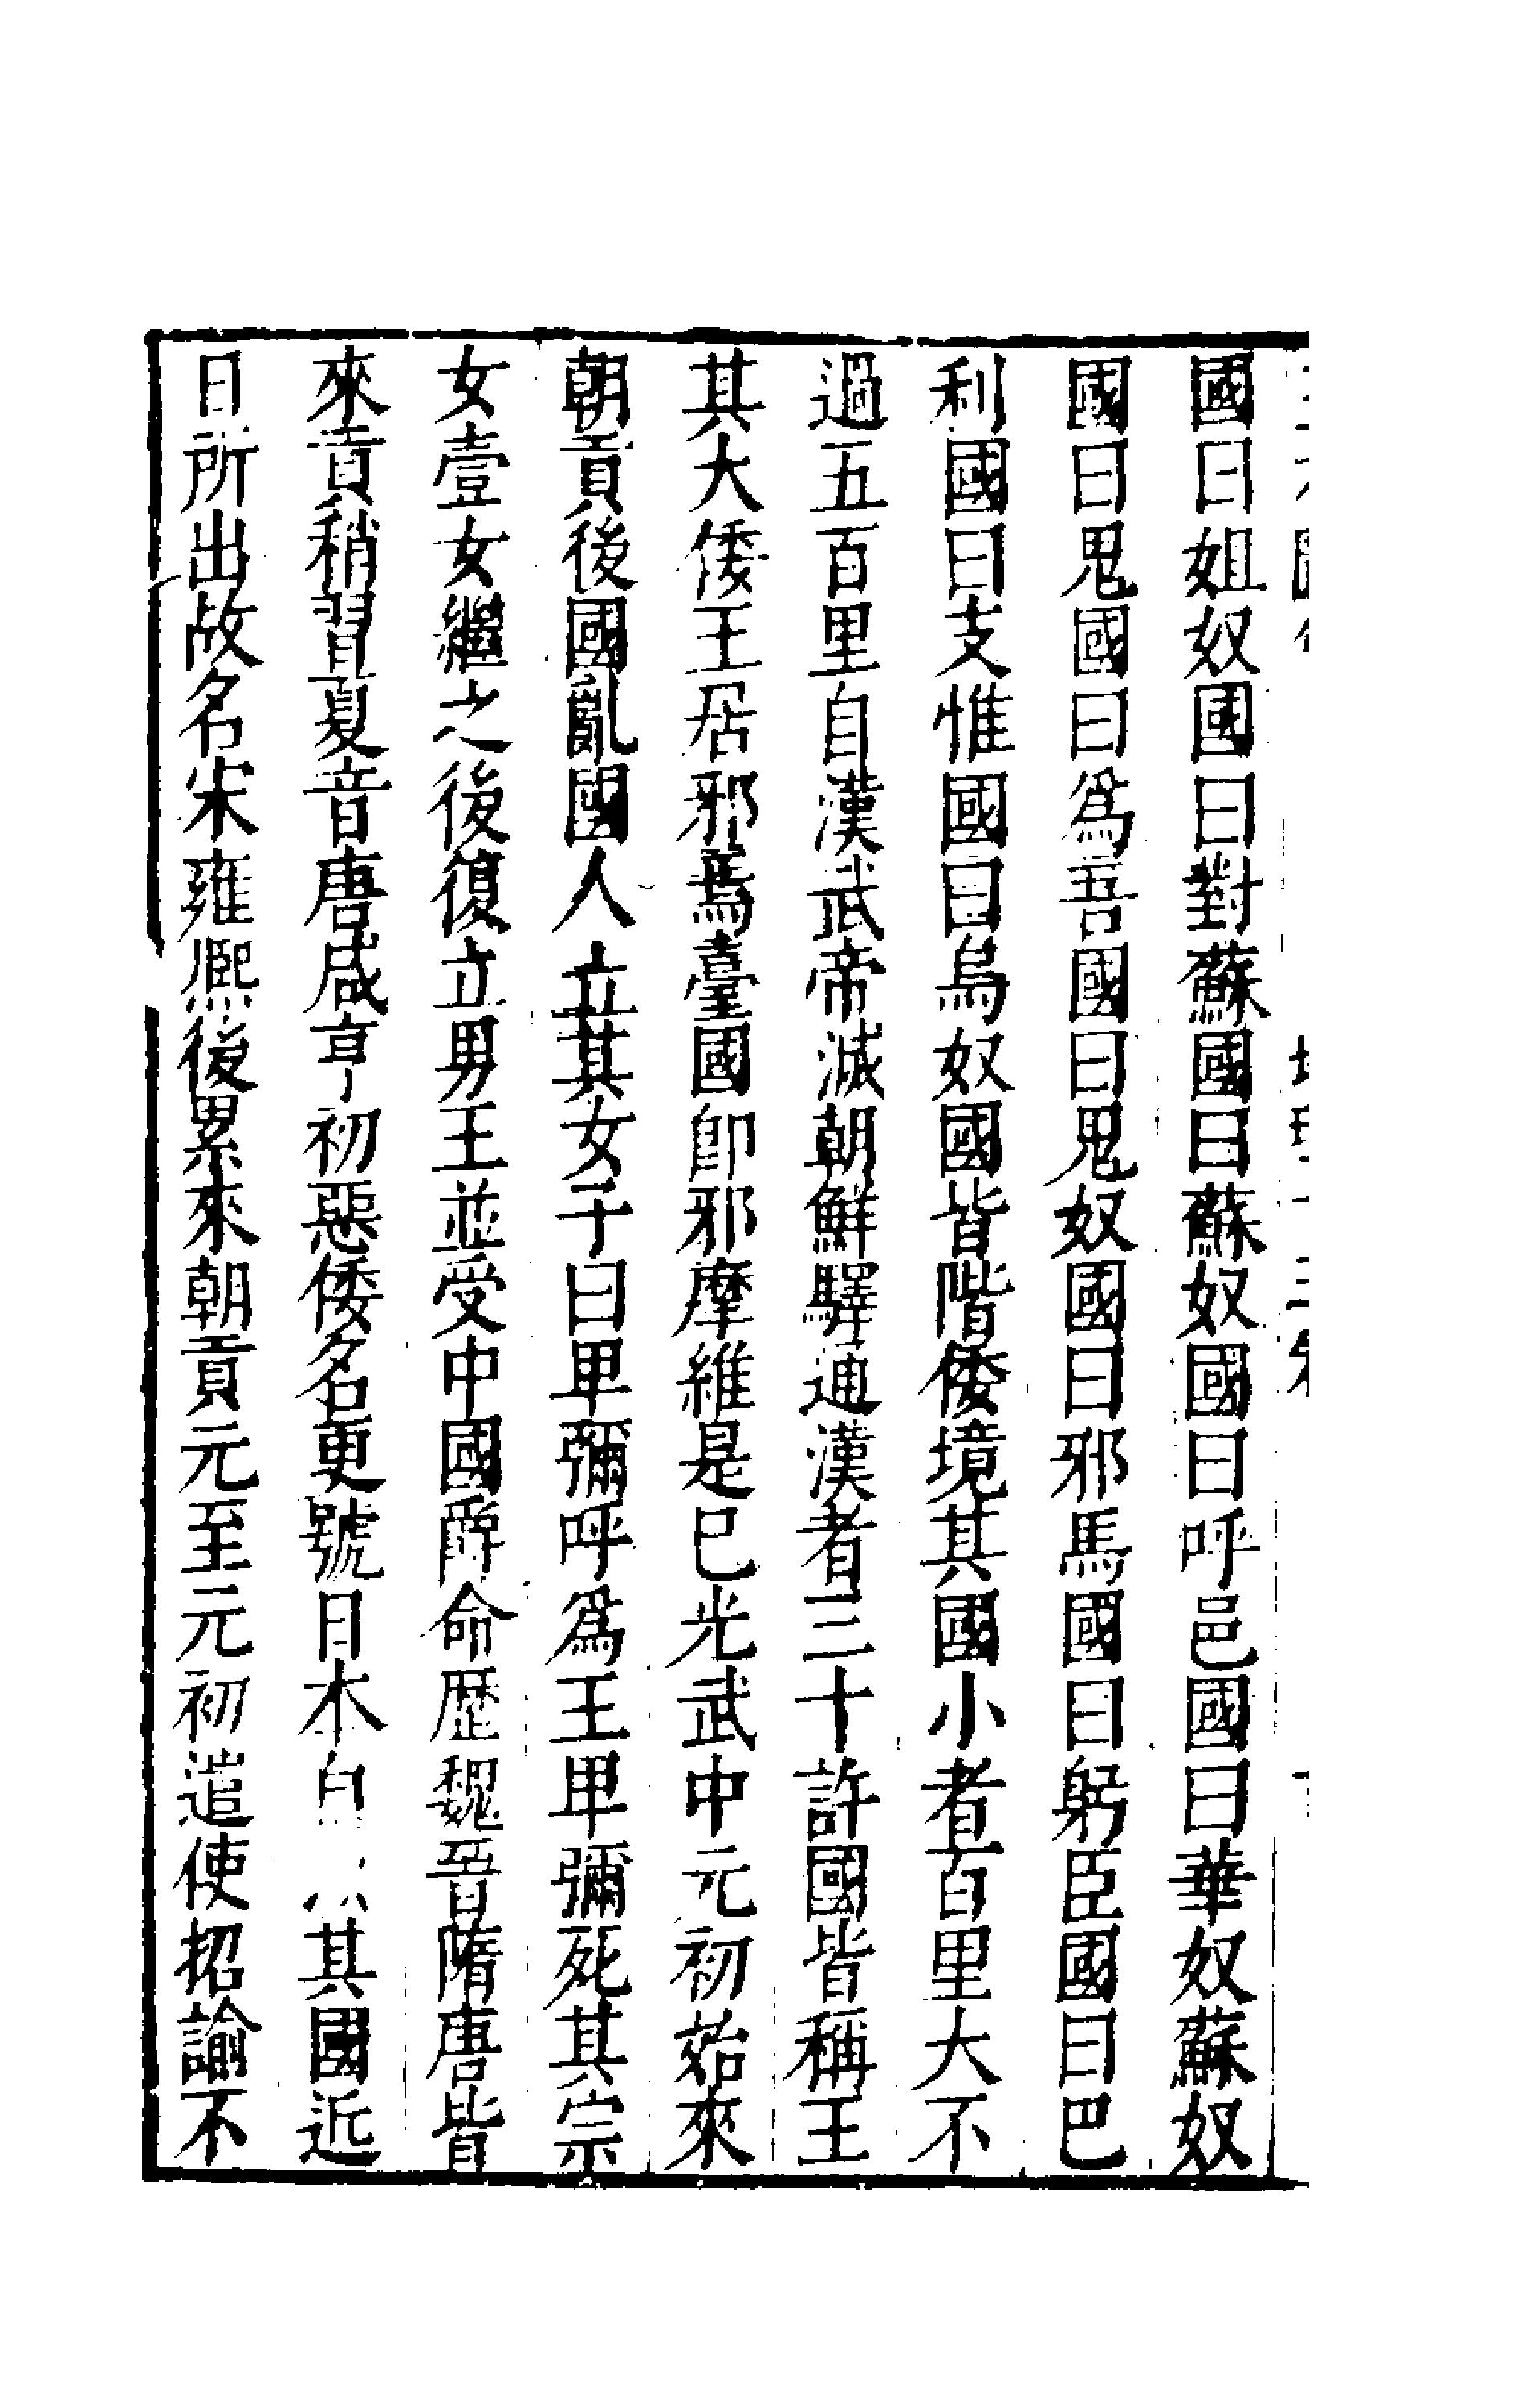 國曰姐奴國曰對蘇國曰蘇奴國曰呼邑國曰華奴蘇奴
國曰鬼國曰爲吾國曰鬼奴國曰邪馬國曰躬臣國曰巴
利國曰支惟國曰烏奴國皆階倭境其國小者百里大不
過五百里自漢武帝滅朝鮮驛通漢者三十許國皆稱王
其大倭王居邪焉臺國卽邪摩維是巳光武中元初始來
朝貢後國亂國人立其女子曰卑彌呼爲王卑彌死其宗
女壹女繼之後復立男王並受中國爵命歷魏晉隋唐皆
來貢稍習夏音唐咸亨初惡倭名更號日本其國近
日所出故名宋雍熈後累來朝貢元至元初遣使招諭不